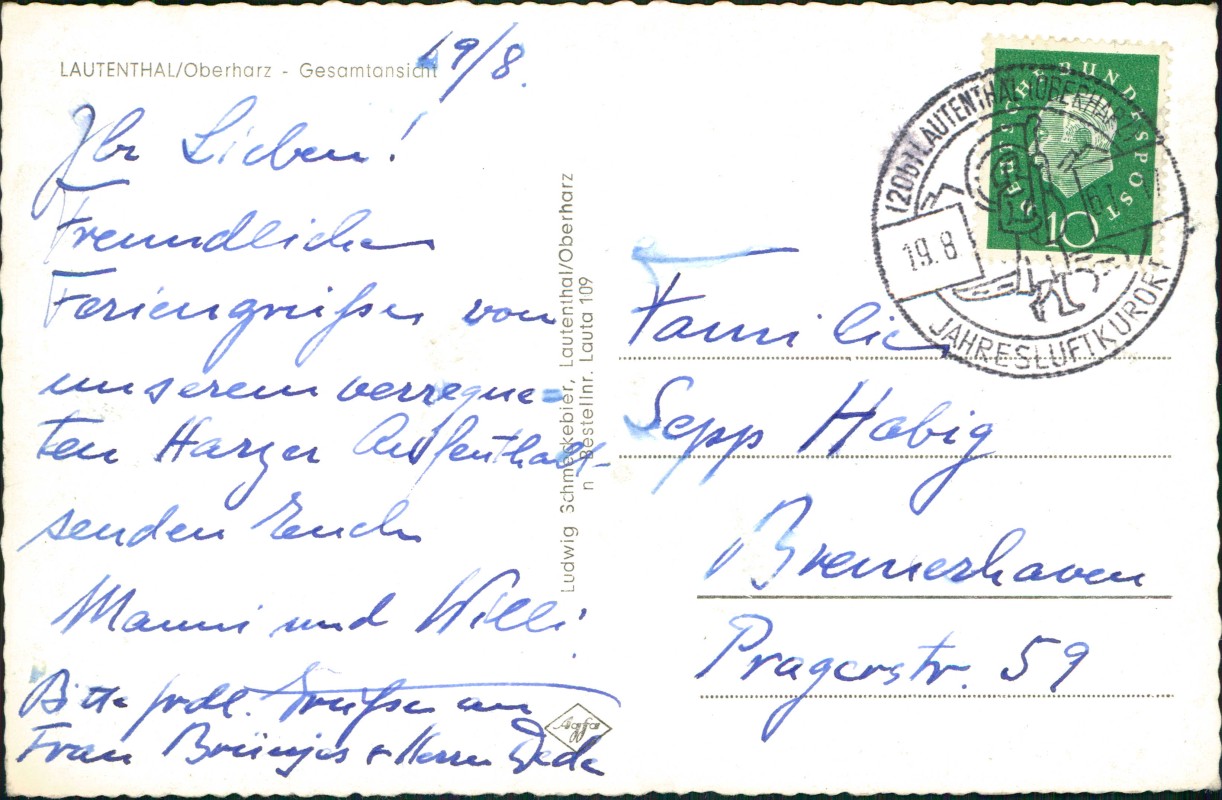 LAUTENTHAL/Oberharz - Gesamtansicht
19/8.
Ihr Lieben!
Freundliche
Feriengrüße von
unserem verregne=
ten Harzer Aufenthalt
senden Euch
Manni und Willi.
Bitte frdl. Grüße an
Frau Brünjes + Herrn
Ludwig Schmeckebier, Lautenthal/Oberharz
n Bestellnr. Lauta 109
Agfa
DEUTSCHE BUNDESPOST
10
(20b) LAUTENTHAL (OBERHARZ)
19.8
61
JAHRESLUFTKURORT
Familie
Sepp Habig
Bremerhaven
Pragerstr. 59